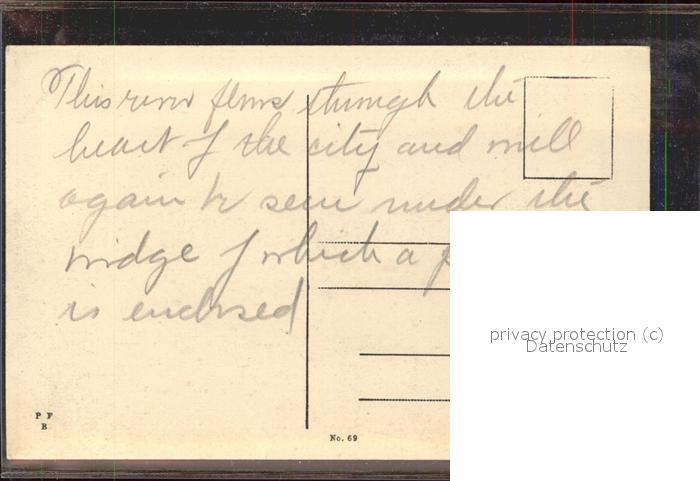 This river flows through the
heart of the city and will
again be seen under the
bridge of which a p
is enclosed
privacy protection (c)
Datenschutz
P F
B
No. 69